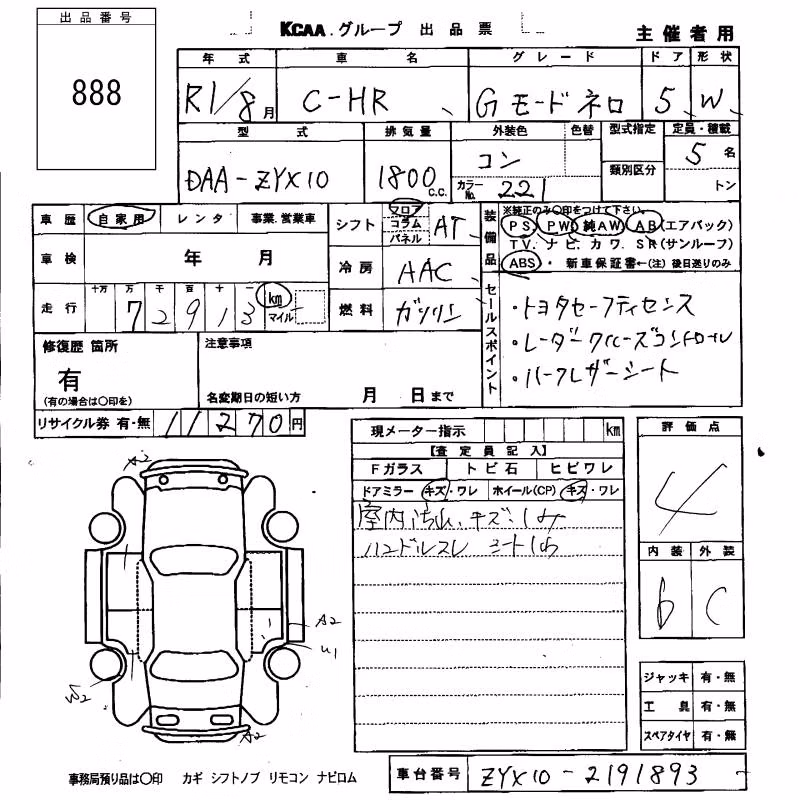 出品番号
888
KCAA.グループ 出品票
主催者用
年式 車名 グレード ドア 形状
R1/8月 C-HR G モード ネロ 5 W
型式 排気量 外装色 色替 型式指定 定員・積載
DAA-ZYX10 1800 C.C. コン 類別区分 5名
カラーNo. 221 トン
車歴 自家用 レンタ 事業.営業車
シフト フロア コラム パネル AT
装備品
※純正のみ〇印をつけて下さい。
PS PW 純AW AB(エアバッグ)
TV. ナビ. カワ. SR(サンルーフ)
ABS・ 新車保証書←(注) 後日送りのみ
車検 年 月
冷房 AAC
走行 十万 万 千 百 十 一
72913 km マイル
燃料 ガソリン
セールスポイント
・トヨタセーフティセンス
・レーダークルーズコントロール
・ハーフレザーシート
修復歴 箇所
有
(有の場合は〇印を)
注意事項
名変期日の短い方 月 日まで
リサイクル券 有・無 11270円
現メーター指示 km
【査定員記入】
Fガラス トビ石 ヒビワレ
ドアミラー キズ・ワレ ホイール(CP) キズ・ワレ
室内汚れ、キズ、シミ
ハンドルスレ シートシワ
評価点
4
内装 外装
b C
A2
A2
U1
W2
A2
ジャッキ 有・無
工具 有・無
スペアタイヤ 有・無
事務局預り品は〇印 カギ シフトノブ リモコン ナビロム
車台番号 ZYX10-2191893